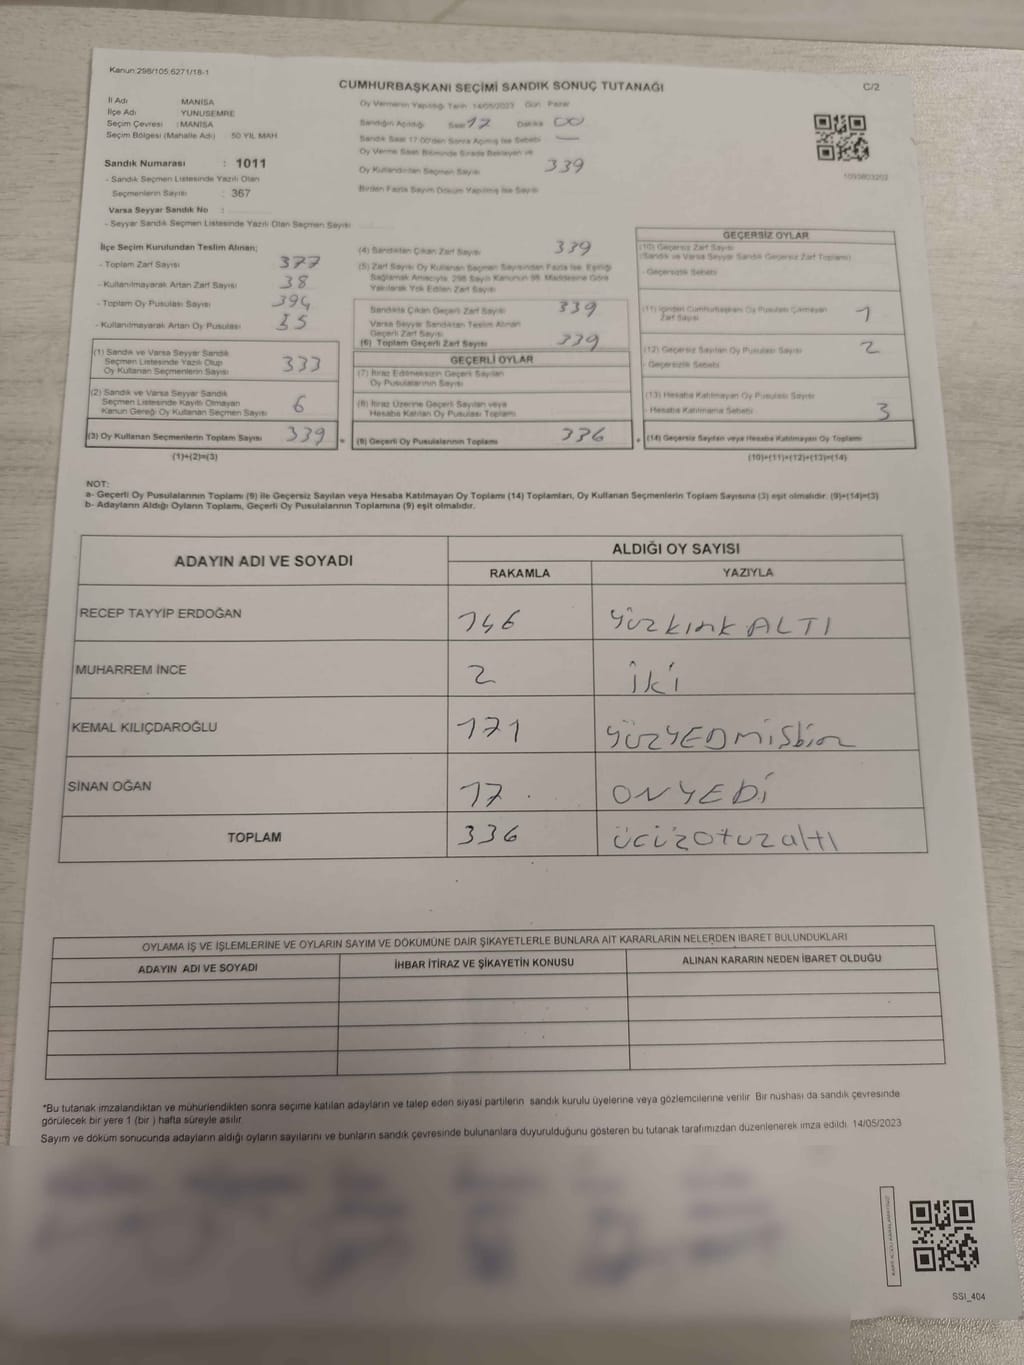 Kanun:298/105.6271/18-1
CUMHURBAŞKANI SEÇİMİ SANDIK SONUÇ TUTANAĞI
C/2
İl Adı MANİSA
İlçe Adı YUNUSEMRE
Seçim Çevresi : MANİSA
Seçim Bölgesi (Mahalle Adı) 50 YIL MAH
Sandık Numarası : 1011
- Sandık Seçmen Listesinde Yazılı Olan
Seçmenlerin Sayısı : 367
Varsa Seyyar Sandık No :
- Seyyar Sandık Seçmen Listesinde Yazılı Olan Seçmen Sayısı
Oy Vermenin Yapıldığı Tarih 14/05/2023 Gün Pazar
Sandığın Açıldığı Saat 17 Dakika 00
Sandık Saat 17:00'den Sonra Açılmış İse Sebebi —
Oy Verme Saati Bitiminde Sırada Bekleyen ve
Oy Kullandırılan Seçmen Sayısı 339
Birden Fazla Sayım Döküm Yapılmış İse Sayısı
1093803202
İlçe Seçim Kurulundan Teslim Alınan;
- Toplam Zarf Sayısı 377
- Kullanılmayarak Artan Zarf Sayısı 38
- Toplam Oy Pusulası Sayısı 394
- Kullanılmayarak Artan Oy Pusulası
(1) Sandık ve Varsa Seyyar Sandık
Seçmen Listesinde Yazılı Olup
Oy Kullanan Seçmenlerin Sayısı 333
(2) Sandık ve Varsa Seyyar Sandık
Seçmen Listesinde Kayıtlı Olmayan
Kanun Gereği Oy Kullanan Seçmen Sayısı 6
(3) Oy Kullanan Seçmenlerin Toplam Sayısı 339
(1)+(2)=(3)
(4) Sandıktan Çıkan Zarf Sayısı 339
(5) Zarf Sayısı Oy Kullanan Seçmen Sayısından Fazla İse, Eşitliği
Sağlamak Amacıyla 298 Sayılı Kanunun 98. Maddesine Göre
Yakılarak Yok Edilen Zarf Sayısı
Sandıkta Çıkan Geçerli Zarf Sayısı 339
Varsa Seyyar Sandıktan Teslim Alınan
Geçerli Zarf Sayısı
(6) Toplam Geçerli Zarf Sayısı 339
GEÇERLİ OYLAR
(7) İtiraz Edilmeksizin Geçerli Sayılan
Oy Pusulalarının Sayısı
(8) İtiraz Üzerine Geçerli Sayılan veya
Hesaba Katılan Oy Pusulası Toplamı
(9) Geçerli Oy Pusulalarının Toplamı 336
GEÇERSİZ OYLAR
(10) Geçersiz Zarf Sayısı
(Sandık ve Varsa Seyyar Sandık Geçersiz Zarf Toplamı)
- Geçersizlik Sebebi
(11) İçinden Cumhurbaşkanı Oy Pusulası Çıkmayan
Zarf Sayısı 1
(12) Geçersiz Sayılan Oy Pusulası Sayısı 2
- Geçersizlik Sebebi
(13) Hesaba Katılmayan Oy Pusulası Sayısı
- Hesaba Katılmama Sebebi 3
(14) Geçersiz Sayılan veya Hesaba Katılmayan Oy Toplamı
(10)+(11)+(12)+(13)=(14)
NOT:
a- Geçerli Oy Pusulalarının Toplamı (9) ile Geçersiz Sayılan veya Hesaba Katılmayan Oy Toplamı (14) Toplamları, Oy Kullanan Seçmenlerin Toplam Sayısına (3) eşit olmalıdır. (9)+(14)=(3)
b- Adayların Aldığı Oyların Toplamı, Geçerli Oy Pusulalarının Toplamına (9) eşit olmalıdır.
ADAYIN ADI VE SOYADI ALDIĞI OY SAYISI
RAKAMLA YAZIYLA
RECEP TAYYİP ERDOĞAN 146 YüzkırkALTI
MUHARREM İNCE 2 iki
KEMAL KILIÇDAROĞLU 171 YÜZYEDMİSbir
SİNAN OĞAN 17 ONYEDİ
TOPLAM 336 ücüzotuzaltı
OYLAMA İŞ VE İŞLEMLERİNE VE OYLARIN SAYIM VE DÖKÜMÜNE DAİR ŞİKAYETLERLE BUNLARA AİT KARARLARIN NELERDEN İBARET BULUNDUKLARI
ADAYIN ADI VE SOYADI İHBAR İTİRAZ VE ŞİKAYETİN KONUSU ALINAN KARARIN NEDEN İBARET OLDUĞU
*Bu tutanak imzalandıktan ve mühürlendikten sonra seçime katılan adayların ve talep eden siyasi partilerin sandık kurulu üyelerine veya gözlemcilerine verilir. Bir nushası da sandık çevresinde
görülecek bir yere 1 (bir ) hafta süreyle asılır.
Sayım ve döküm sonucunda adayların aldığı oyların sayılarını ve bunların sandık çevresinde bulunanlara duyurulduğunu gösteren bu tutanak tarafımızdan düzenlenerek imza edildi. 14/05/2023
SSI_404